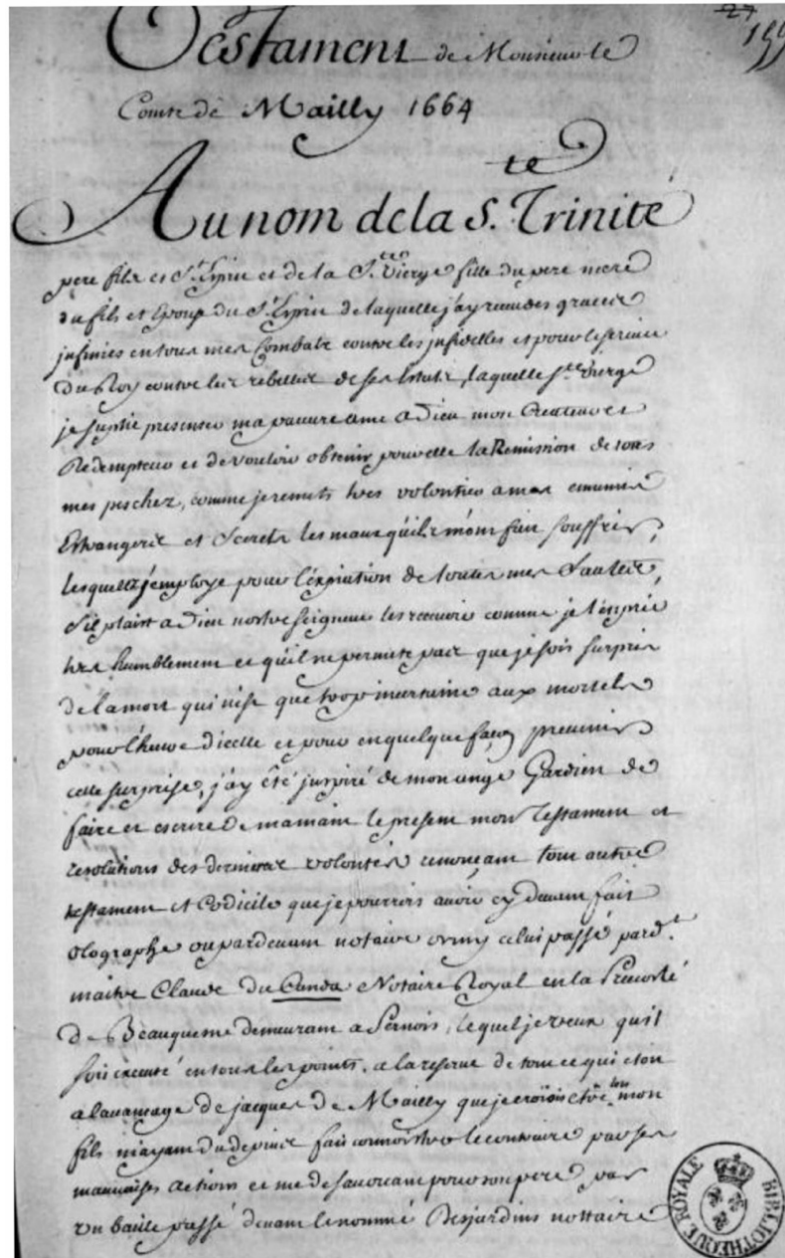 27
155
Testament de Monsieur le
Comte de Mailly 1664
Au nom de la S.te Trinité
pere fils et St. Esprit et de la Ste. Vierge fille du pere mere
du fils et Epouse du St. Esprit de laquelle j'ay receu des graces
infinies en tous mes Combats contre les infidelles et pour le service
du Roy contre les rebelles de ses Estats, laquelle Ste. Vierge
je suplie presenter ma pauvre ame a Dieu mon Createur et
Redempteur et de vouloir obtenir pour elle la Remission de tous
mes pechez, comme je remets tres volontiers a mes ennemis
Estrangers et Secrets les maux qu'ils m'ont fait souffrir,
lesquels j'employe pour l'expiation de toutes mes fautes,
s'il plaist a Dieu nostre seigneur les recevoir comme je l'en prie
tres humblement et qu'il ne permette pas que je sois surpris
de la mort qui n'est que trop incertaine aux mortels
pour l'heure d'icelle et pour en quelque façon prevenir
cette surprise, j'ay été inspiré de mon ange Gardien de
faire et escrire de ma main le present mon Testament et
resolutions des dernieres volontés renonçant tout autre
testament et Codicile que je pourrois avoir cy devant fait
olographe ou pardevant notaire ormis celui passé pard.t
maitre Claude du Canda Notaire Royal en la Prevosté
de Beauquesne demeurant a Pernois, lequel je veux qu'il
soit executé en tous les points. a la reserve de tout ce qui est on
a l'avantage de jacques de Mailly que je croiois être mon
fils m'ayant du depuis fait connoistre le contraire par ses
mauvaises actions et me desavouant pour son pere par
un baille passé devant le nommé Desjardins nottaire
BIBLIOTHEQUE ROYALE